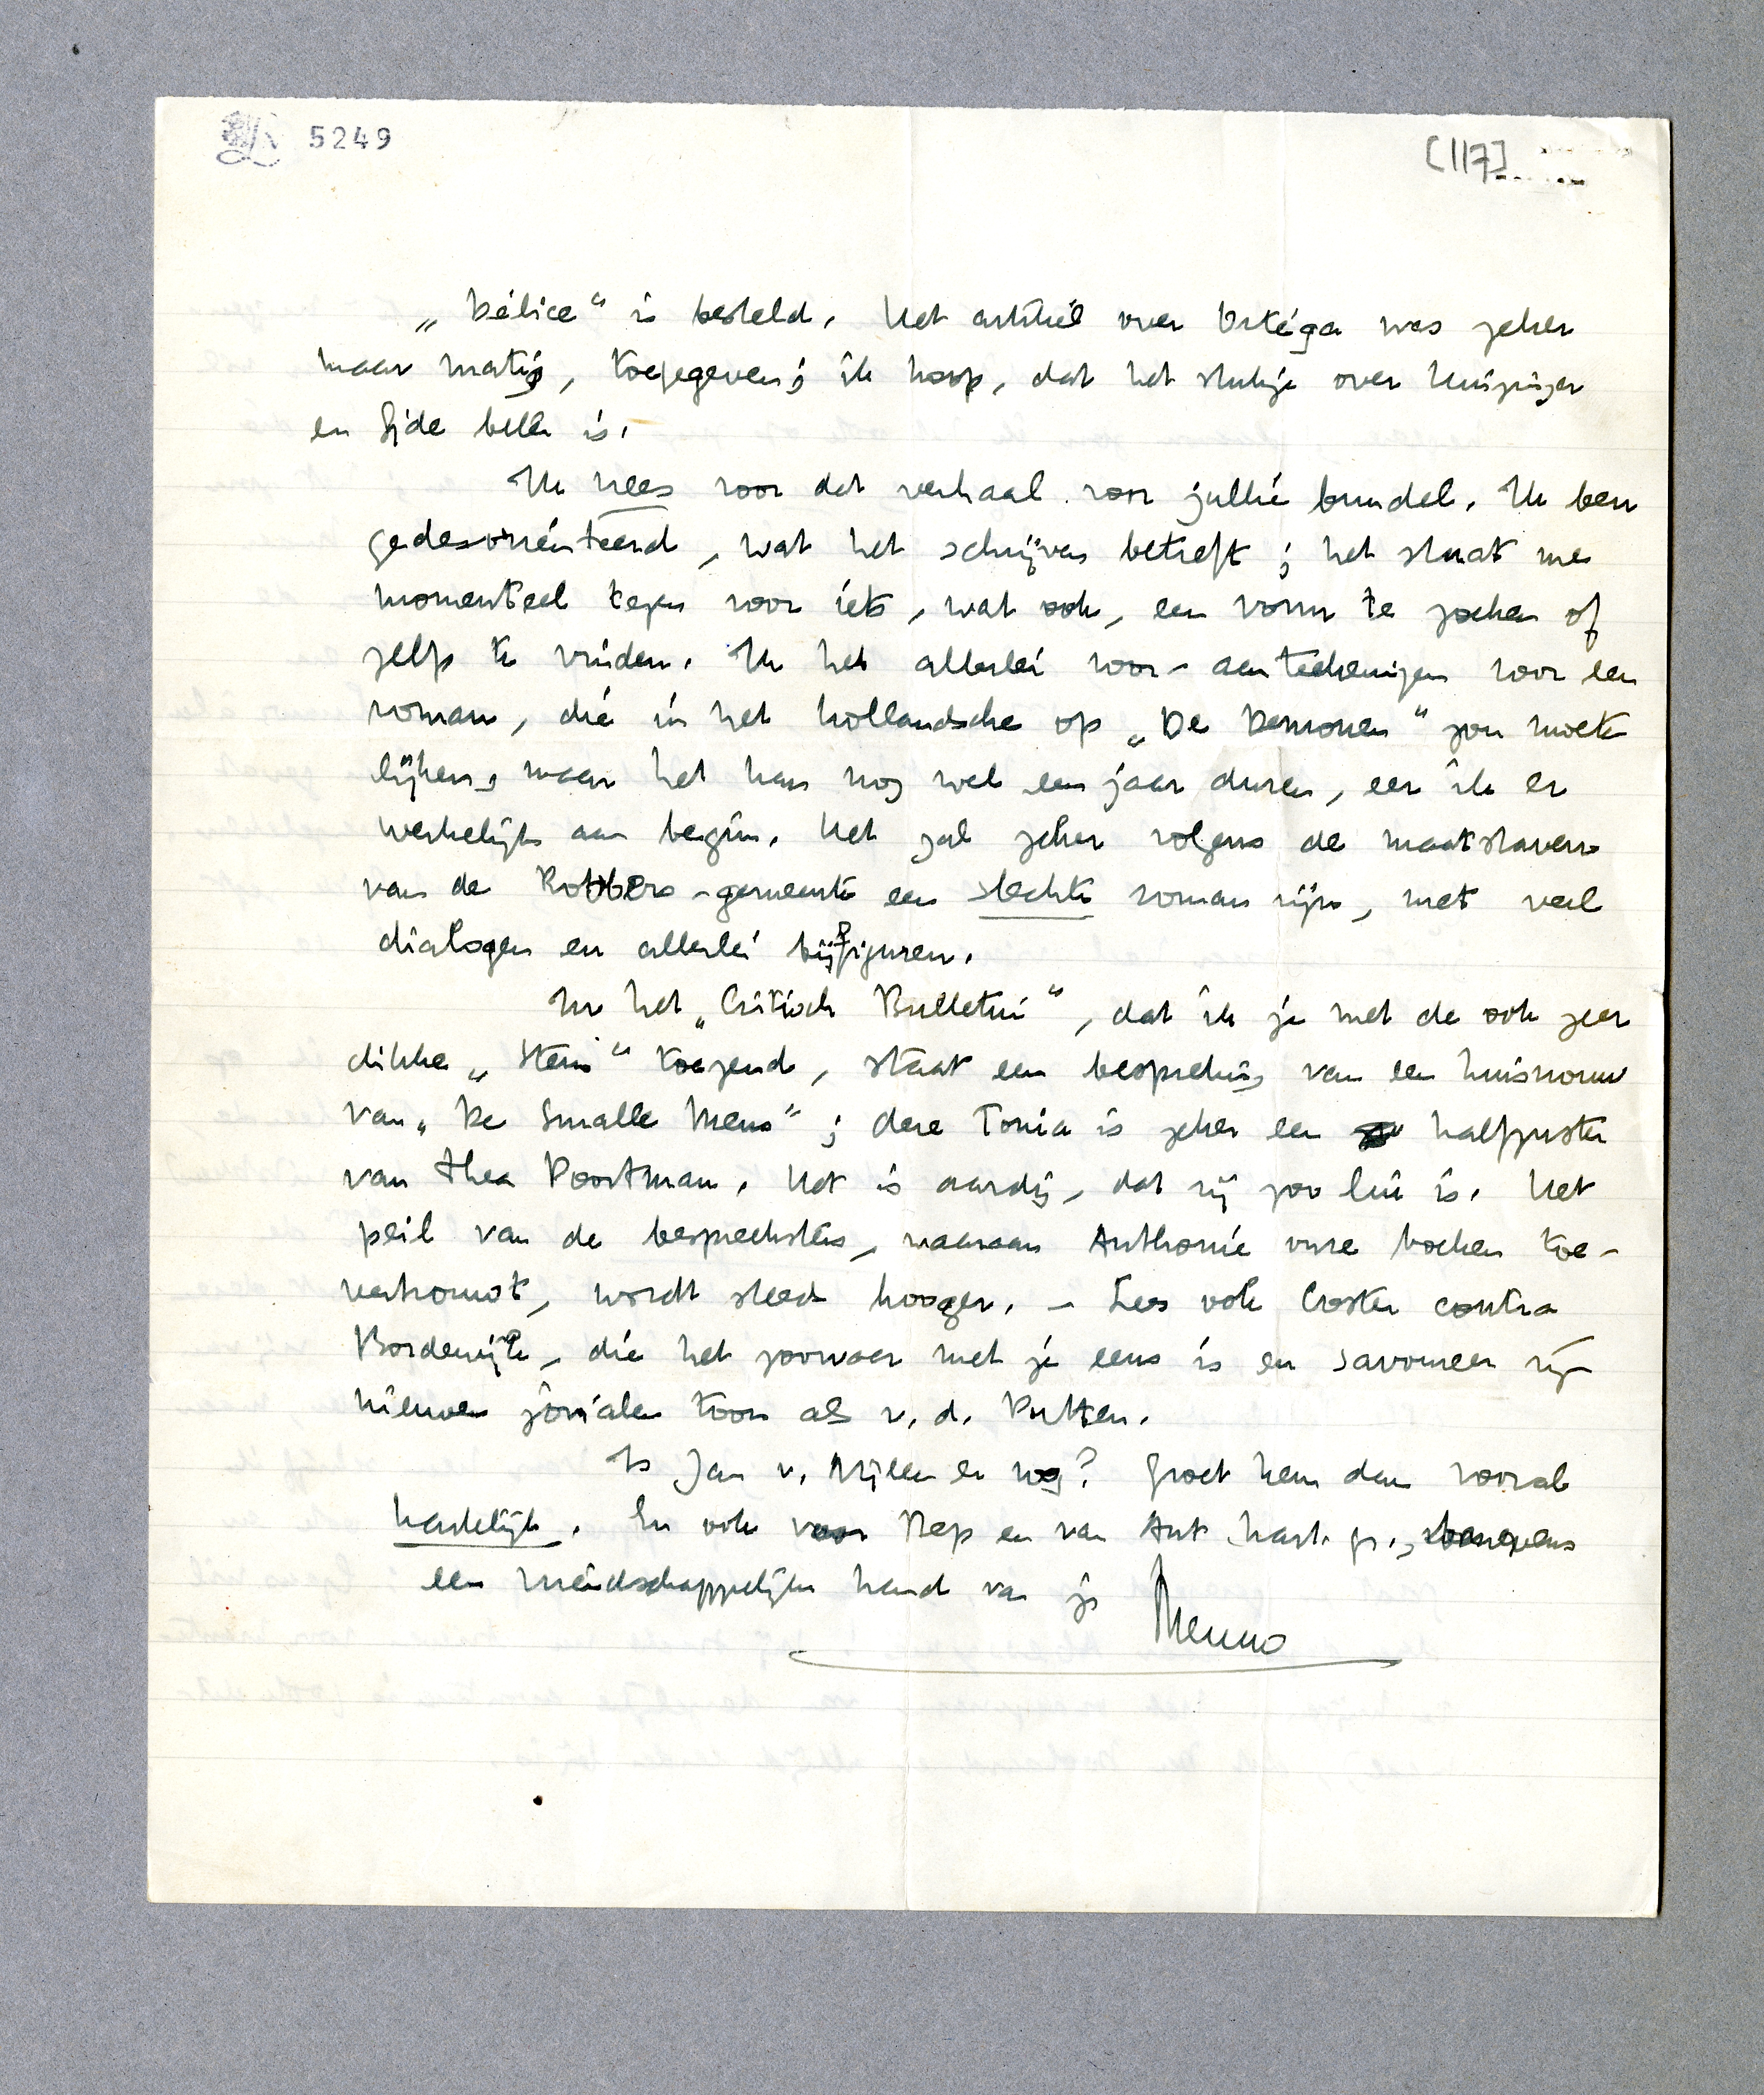 5249
[117]
„Délice" is besteld. Het artikel over Ortéga was zeker
maar matig, toegegeven; ik hoop, dat het stukje over Huizinga
en Gide beter is.
Ik vrees voor dat verhaal voor jullie bundel. Ik ben
gedesoriënteerd, wat het schrijven betreft; het staat me
momenteel tegen voor iets, wat ook, een vorm te zoeken of
zelfs te vinden. Ik heb allerlei voor-aanteekeningen voor een
roman, die in het hollandsche op „De Demonen" zou moeten
lijken, maar het kan nog wel een jaar duren, eer ik er
werkelijk aan begin. Het zal zeker volgens de maatstaven
van de Robbers-gemeente een slechte roman zijn, met veel
dialogen en allerlei bijfiguren.
In het „Critisch Bulletin", dat ik je met de ook zeer
dikke „Stem" toezend, staat een bespreking van een huisvrouw
van „De Smalle Mens"; deze Tonia is zeker een halfzuster
van Thea Poortman. Het is aardig, dat zij zoo lui is. Het
peil van de bespreeksters, waaraan Anthonie onze boeken toe-
vertrouwt, wordt steeds hooger. – Lees ook Coster contra
Bordewijk, die het zoowaar met je eens is en savoureer zijn
nieuwen jovialen toon als v. d. Putten.
Is Jan v. Nijlen er nog? Groet hem dan vooral
hartelijk. En ook voor Bep en van Ant hart. gr.,
een vriendschappelijken hand van je
Menno